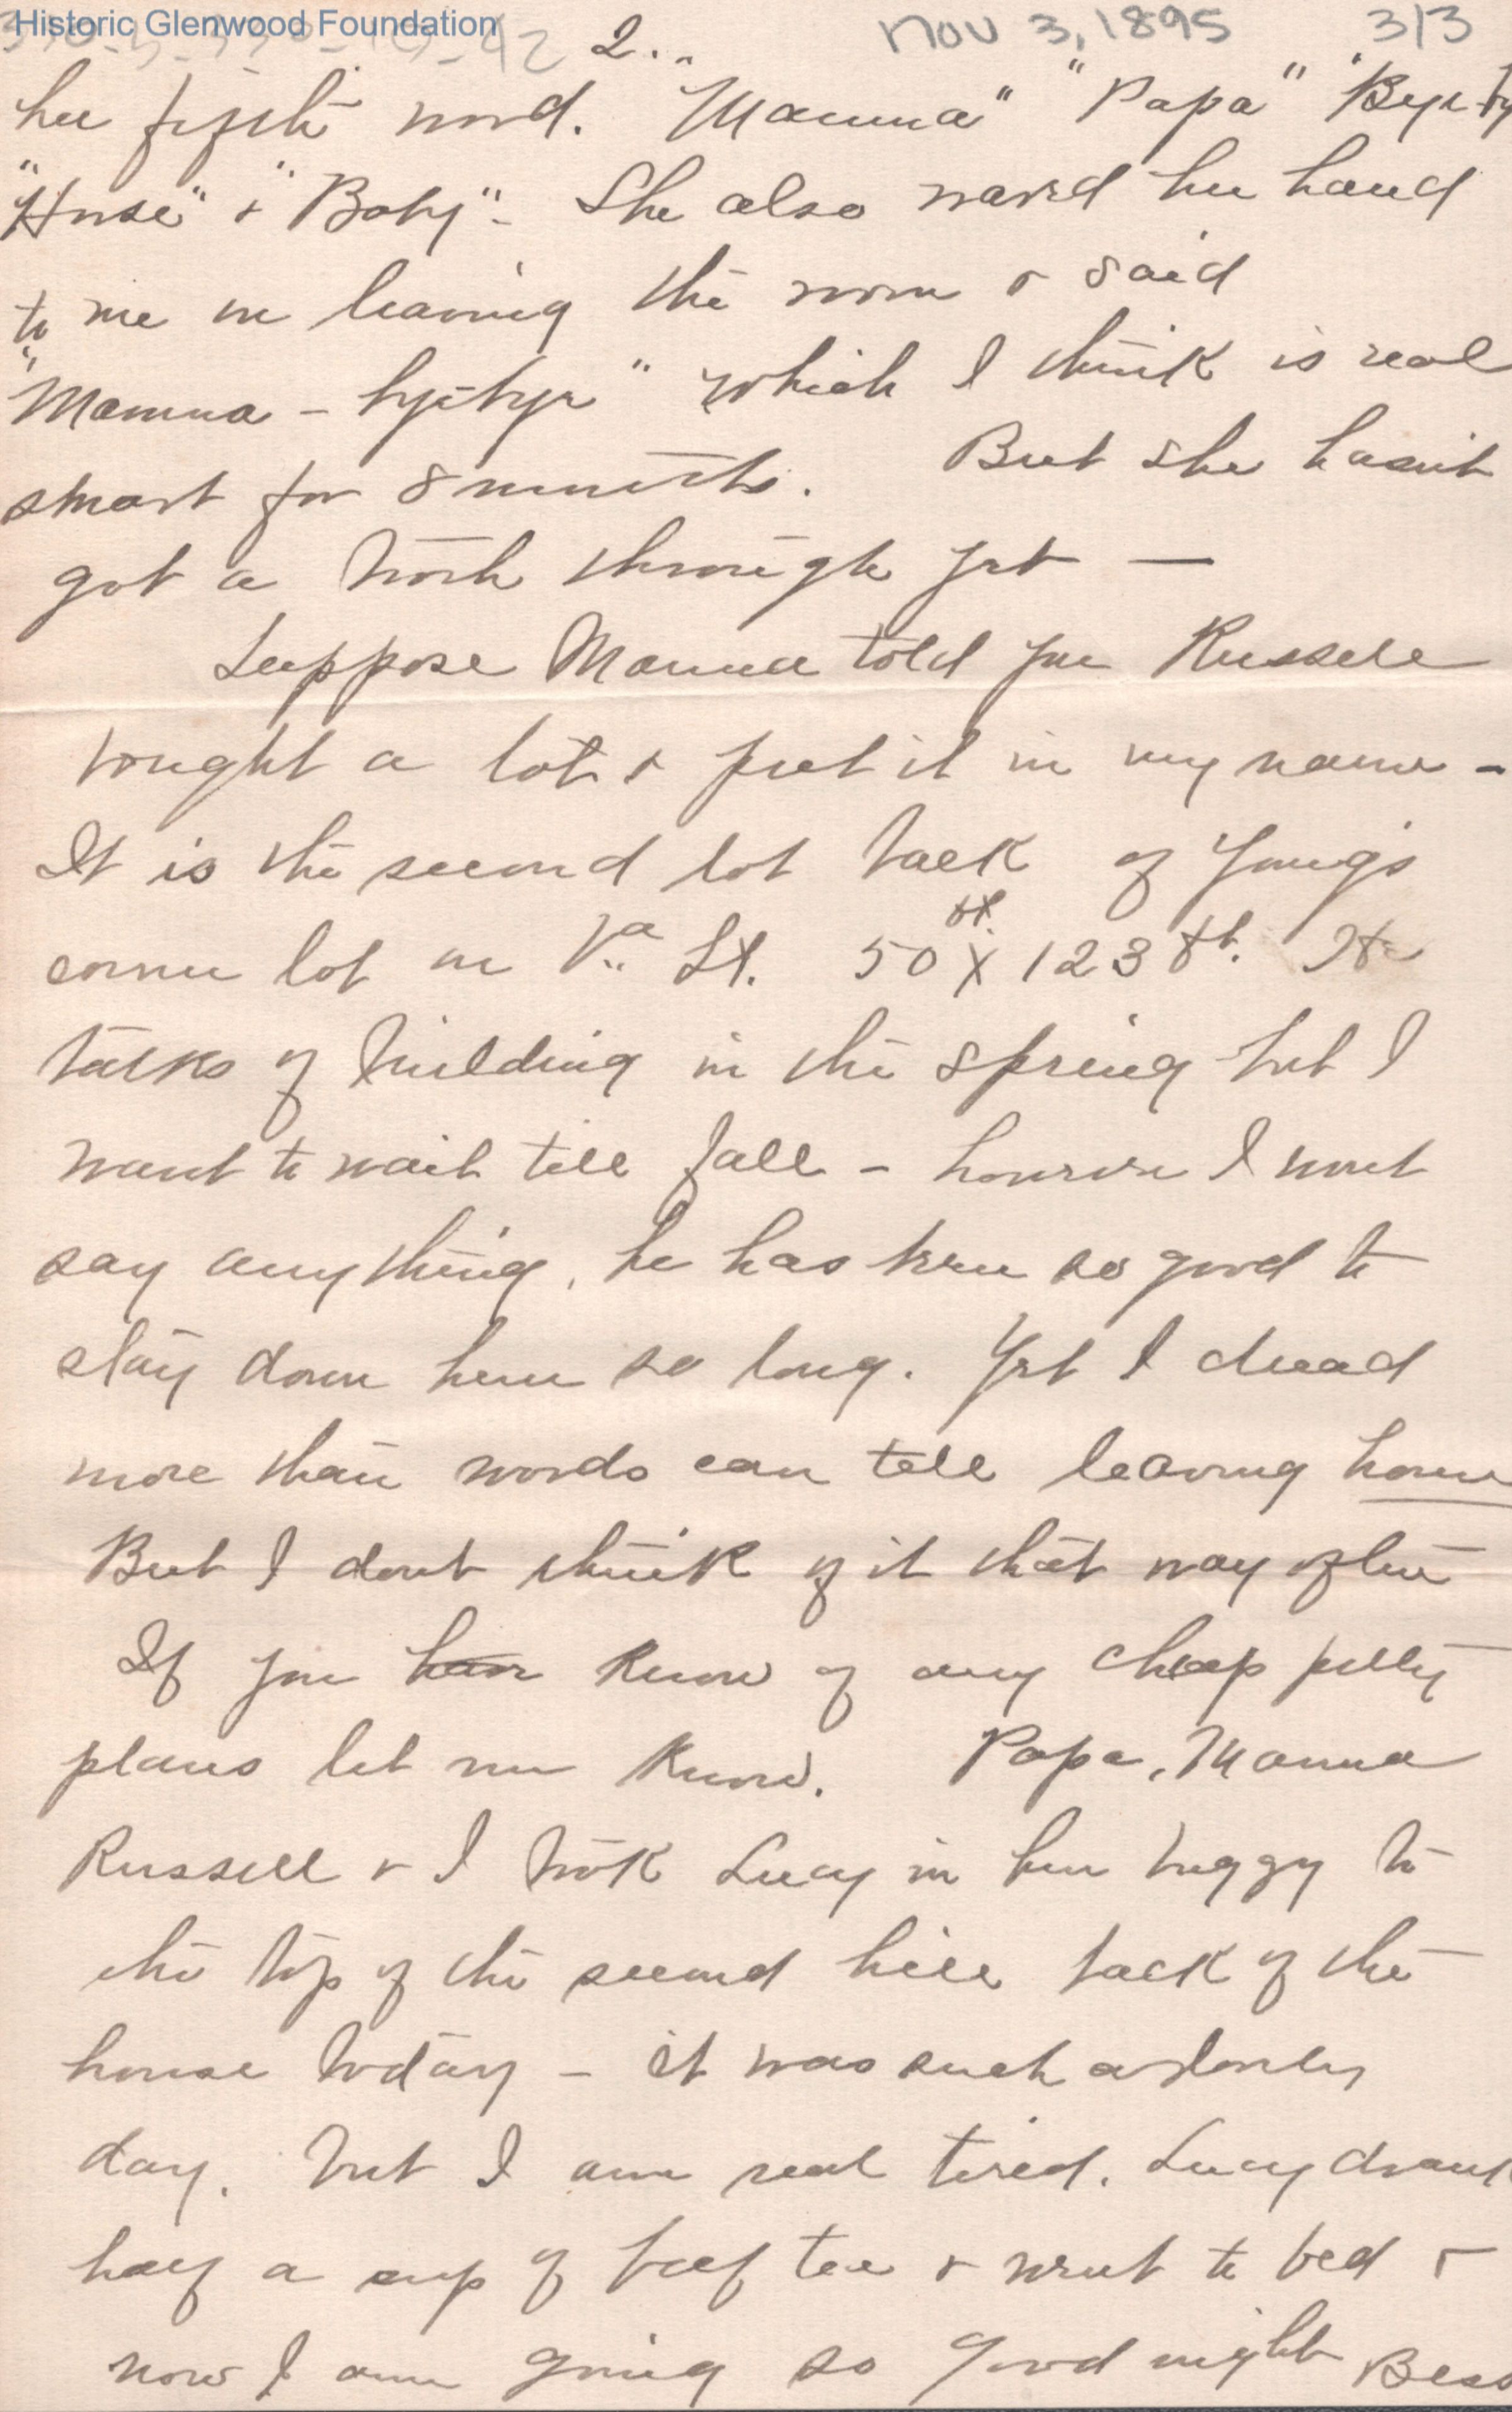 Historic Glenwood Foundation
2.
Nov 3, 1895 313
her fifth word. "Mamma" "Papa" "Bye-by
"Horse" & "Baby" - She also waved her hand
to me on leaving the room & said
"Mamma - bye-bye" which I think is real
smart for 8 months. But she hasn't
got a tooth through yet —
Suppose Mamma told you Russell
bought a lot & put it in my name -
It is the second lot back of Young's
corner lot on Va St. 50 ft. X 123 ft. He
talks of building in the spring but I
want to wait till fall - however I wont
say anything, he has been so good to
stay down here so long. Yet I dread
more than words can tell leaving home
But I dont think of it that way often
If you have know of any cheap pretty
plans let me know. Papa, Mamma
Russell & I took Lucy in her buggy to
the top of the second hill back of the
house today - it was such a lovely
day. but I am real tired. Lucy drank
half a cup of beef tea & went to bed &
now I am going so Good night Bess